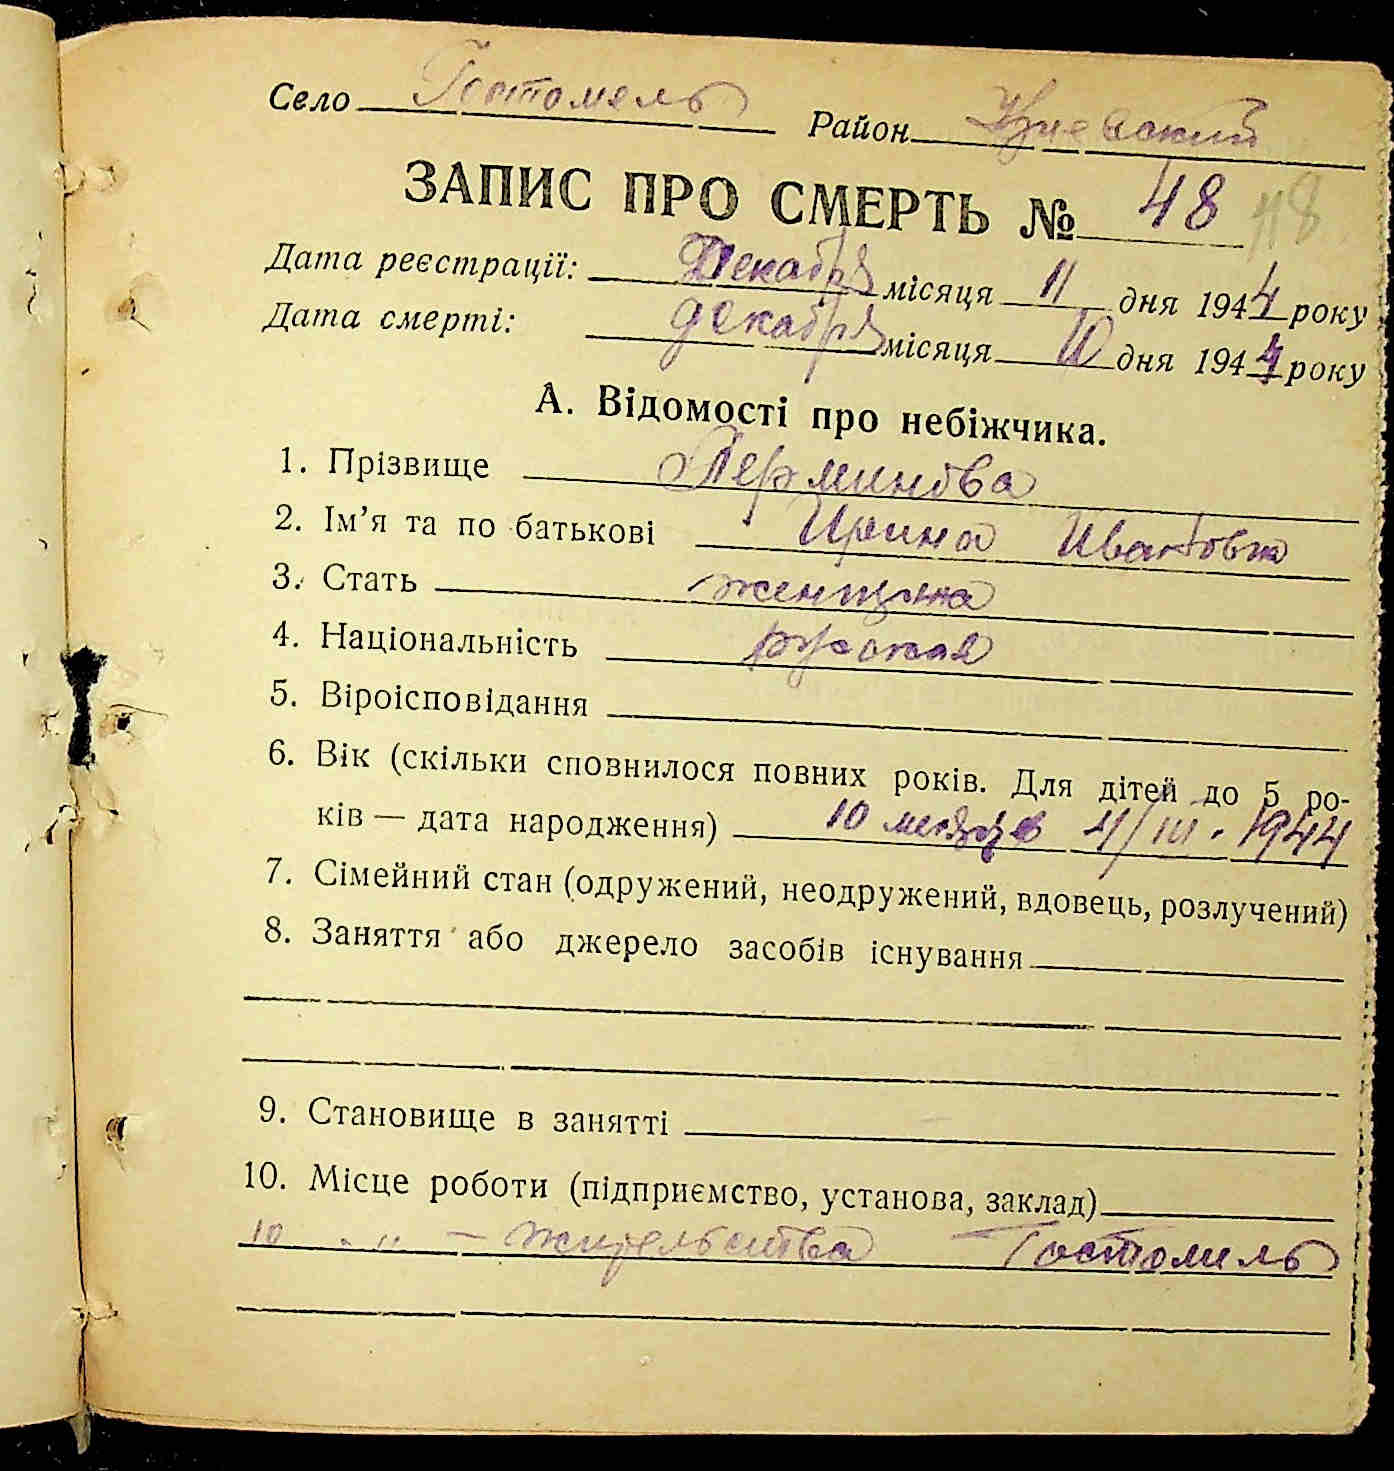 Село Гостомель Район Киевский
ЗАПИС ПРО СМЕРТЬ № 48 48
Дата реєстрації: Декабря місяця 11 дня 1944 року
Дата смерті: декабря місяця 10 дня 1944 року
А. Відомості про небіжчика.
1. Прізвище Перминова
2. Ім’я та по батькові Ирина Ивановна
3. Стать женщина
4. Національність русская
5. Віроісповідання
6. Вік (скільки сповнилося повних років. Для дітей до 5 ро-
ків — дата народження) 10 месяцев 4/III. 1944
7. Сімейний стан (одружений, неодружений, вдовець, розлучений)
8. Заняття або джерело засобів існування
9. Становище в занятті
10. Місце роботи (підприємство, установа, заклад)
10 -"- – жительства Гостомиль